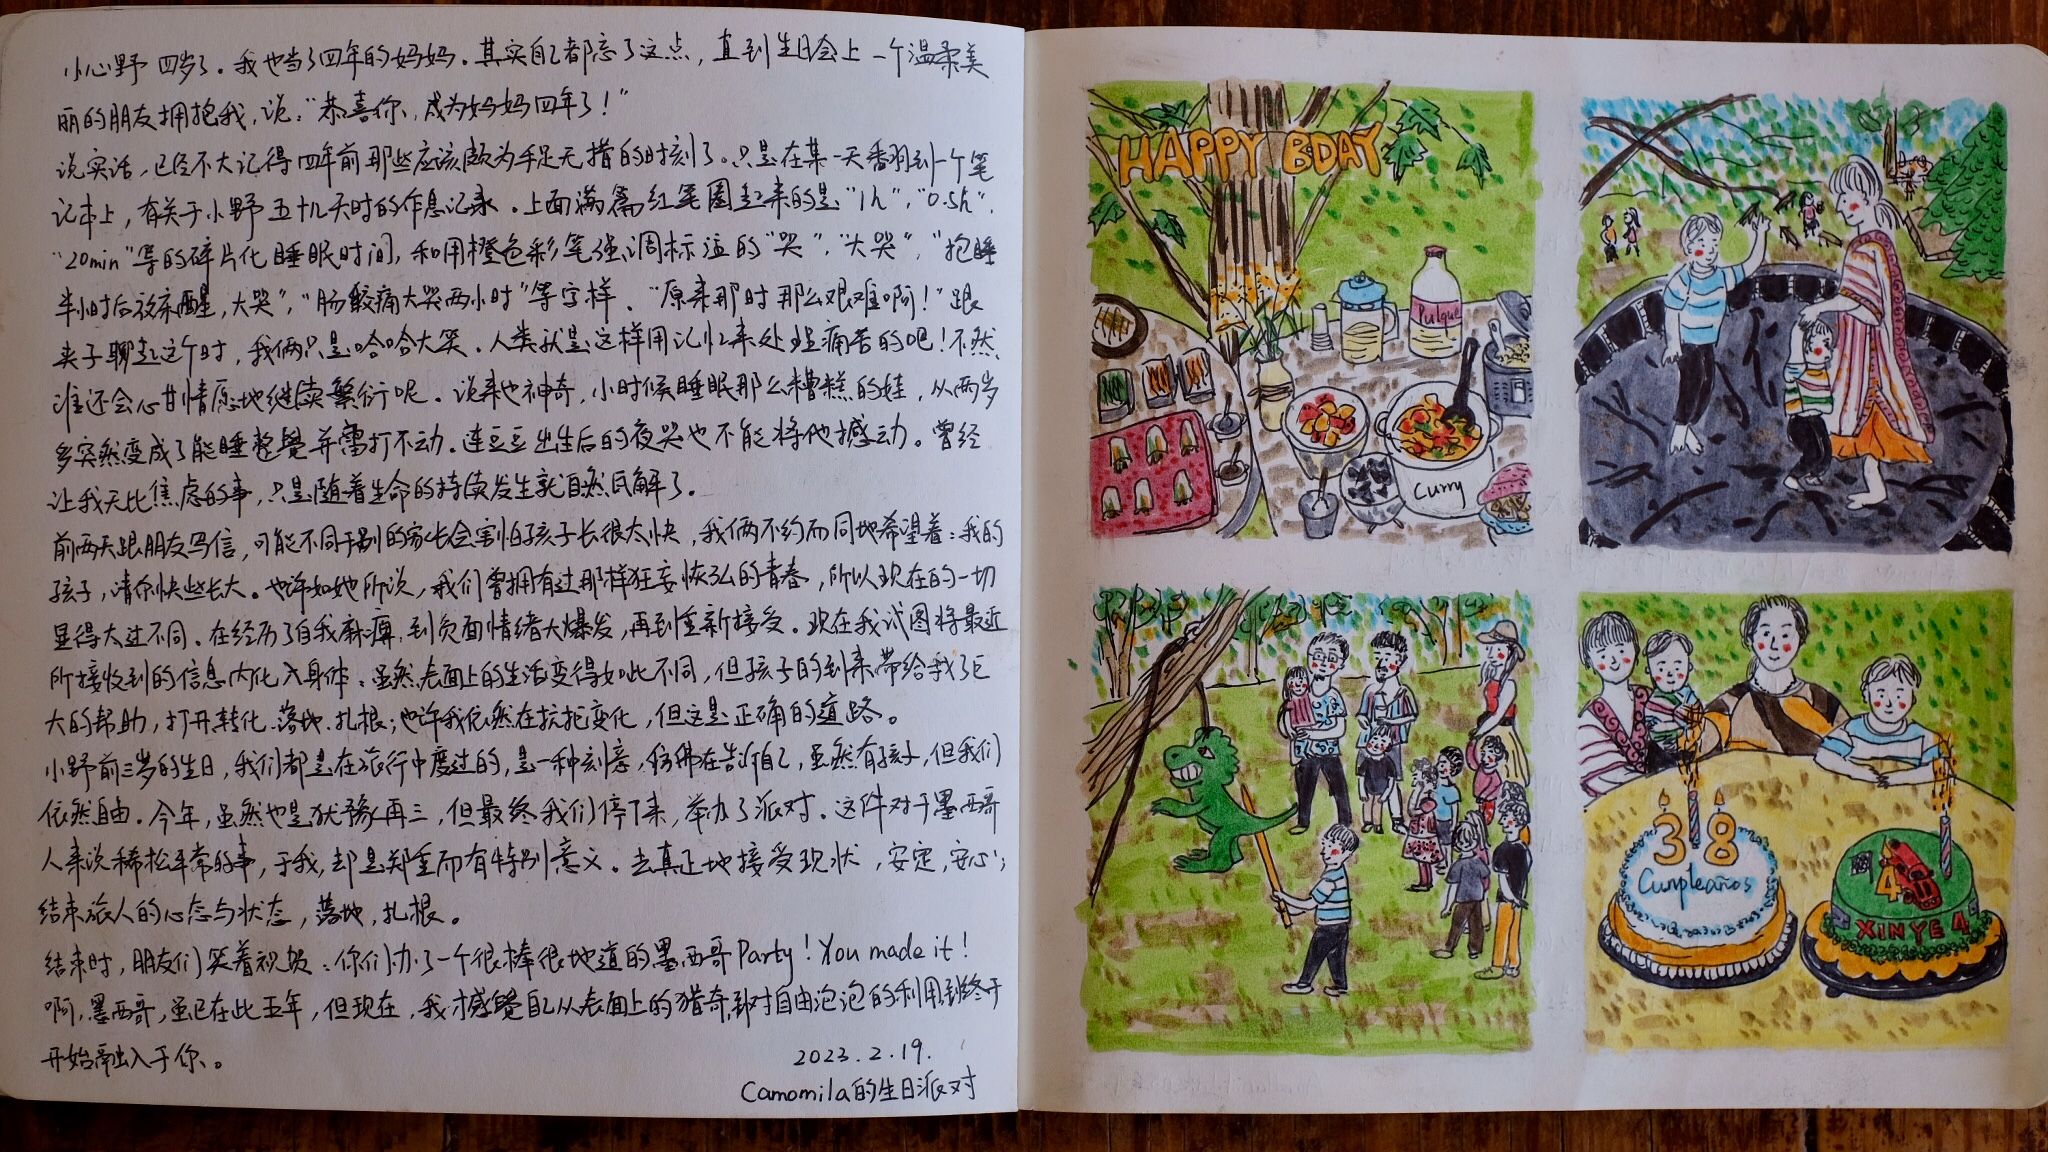 小心野 四岁了。我也当了四年的妈妈。其实自己都忘了这点，直到生日会上一个温柔美
丽的朋友拥抱我，说："恭喜你，成为妈妈四年了！"
说实话，已经不大记得四年前那些应该颇为手足无措的时刻了。只是在某一天翻到一个笔
记本上，有关于小野五十几天时的作息记录。上面满篇红笔圈起来的是"1h"，"0.5h"，
"20min"等的碎片化睡眠时间，和用橙色彩笔强调标注的"哭"，"大哭"，"抱睡
半小时后放床醒，大哭"，"肠胀痛大哭两小时"等字样。"原来那时那么艰难啊！"跟
夫子聊起这个时，我俩只是哈哈大笑。人类就是这样用记忆来处理痛苦的吧！不然，
谁还会心甘情愿地继续繁衍呢。说来也神奇，小时候睡眠那么糟糕的娃，从两岁
多突然变成了能睡整觉并雷打不动。连豆豆出生后的夜哭也不能将他撼动。曾经
让我无比焦虑的事，只是随着生命的持续发生就自然瓦解了。
前两天跟朋友写信，可能不同于别的家长会害怕孩子长很太快，我俩不约而同地希望着：我的
孩子，请你快些长大。也许如她所说，我们曾拥有过那样狂妄恢弘的青春，所以现在的一切
显得太过不同。在经历了自我麻痹，到负面情绪大爆发，再到重新接受。现在我试图将最近
所接收到的信息内化入身体。虽然表面上的生活变得如此不同，但孩子的到来带给我了巨
大的帮助，打开转化、落地、扎根；也许我依然在抗拒变化，但这是正确的道路。
小野前三岁的生日，我们都是在旅行中度过的，是一种刻意，仿佛在告诉自己，虽然有孩子，但我们
依然自由。今年，虽然也是犹豫再三，但最终我们停下来，举办了派对。这件对于墨西哥
人来说稀松平常的事，于我，却是郑重而有特别意义。去真正地接受现状，安定，安心；
结束旅人的心态与状态，落地，扎根。
结束时，朋友们笑着祝贺：你们办了一个很棒很地道的墨西哥Party！You made it！
啊，墨西哥，虽已在此五年，但现在，我才感觉自己从表面上的猎奇，到对自由泡泡的利用，到终于
开始融入于你。
2023.2.19.
Camomila的生日派对
HAPPY BDAY
Pulque
Curry
38
Cumpleaños
4
XINYE 4